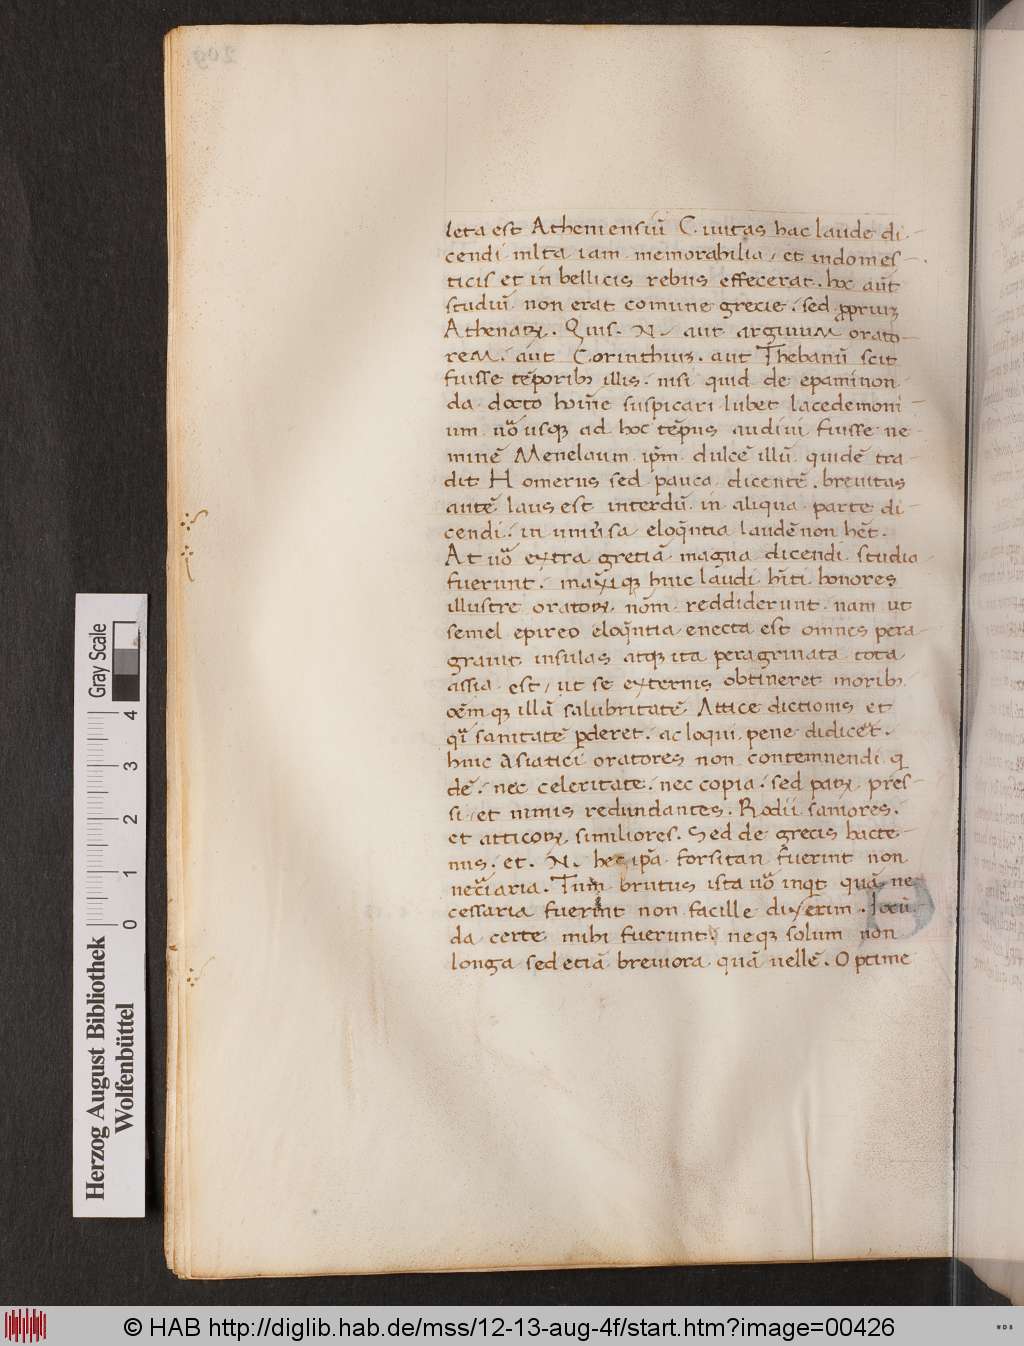 leta est Atheniensiũ Ciuitas hac laude di-
cendi mlta iam memorabilia / et in domes-
ticis et in bellicis rebus effecerat. hoc aũt
studiũ non erat comune grecie. sed ꝓpriuꝫ
Athenaꝝ. Quis. N. aut arguuM orato-
reM. aut Corinthiuꝫ. aut Thebanũ scit
fuisse tẽporibꝫ illis. nisi quid de epaminon-
da docto hoĩe suspicari lubet lacedemoni-
um uo usqꝫ ad hoc tẽpus audiui fuisse ne-
minẽ Menelaum ip̃m dulcẽ illũ quidẽ tra-
dit Homerus sed pauca dicentẽ. breuitas
autẽ laus est interdũ in aliqua parte di-
cendi. in uniũsa eloq̃ntia laudẽ non hẽt.
At uo extra greciã magna dicendi studia
fuerunt. maxiqꝫ huic laudi hĩti honores
illustre oratoꝝ nõm reddiderunt. nam ut
semel e pireo eloq̃ntia euecta est omnes pera-
grauit insulas atqꝫ ita peragrinata tota
assia est / ut se externis obtineret moribꝫ.
oẽmqꝫ illã salubritatẽ Attice dictionis et
q̃i sanitatẽ ꝑderet. ac loqui pene didicet̃.
huic Asiatici oratores non contemnendi q
dẽ. nec celeritate. nec copia. sed paꝝ pres-
si. et nimis redundantes. Rodii saniores.
et atticoꝝ similiores. Sed de grecis hacte-
nus. et. N. hec ip̃a forsitan fuerint non
nec̃iaria. Tum brutus ista uo inqt quã ne
cessaria fuerint non facille dixerim. Iocũ-
da certe mihi fuerunt. neqꝫ solum non
longa sed etiã breuiora quã uellẽ. Optime
209
Gray Scale
0 1 2 3 4
Herzog August Bibliothek
Wolfenbüttel
© HAB http://diglib.hab.de/mss/12-13-aug-4f/start.htm?image=00426